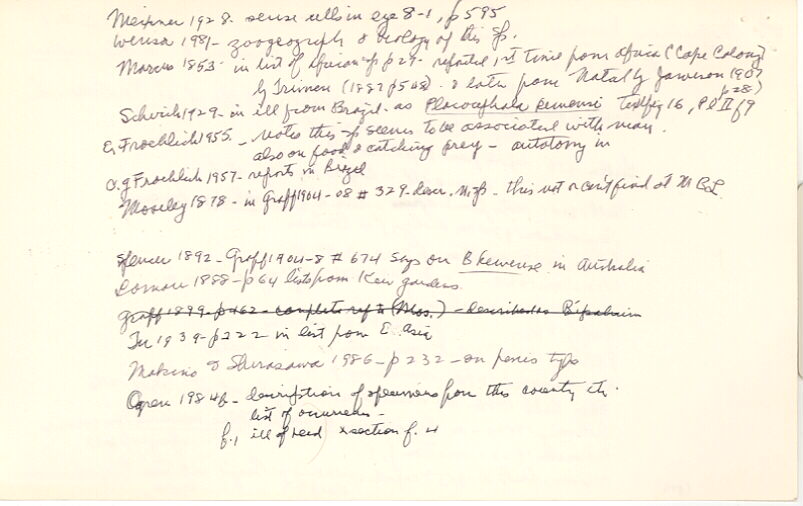 Meixner 1928. sense cells in eye 8-1, p595
Winsor 1981- zoogeography & biology of this sp.
Marcus 1953- in list of African sp p29- reported 1st time from Africa (Cape Colony)
by Trimen (1887 p548). & later from Natal by Jameson 1907
p28)
Schirch 1929- in ill from Brazil- as Placocephala kewensis Textfig 16, Pl II f9
E. Froehlich 1955. - notes this sp seems to be associated with man.
also on food & catching prey - autotomy in
C.g Froehlich 1957- reports in Brazil
Moseley 1878- in Graff 1904-08 # 329- descr. n.sp. - this not or can't find at MBL
Spencer 1892- Graff 1904-8 # 674 says on B kewense in Australia
1888- p64 lists from Kew gardens
Graff 1899- p462- complete ref to (Mos.) - described as Bipalium
Tu 1939- p222 in list from E. Asia
Makino & Shirasawa 1986- p232- on penis type
Ogren 1984b- description of specimens from this country etc.
list of occurrences -
f.1 ill of head xsection f. 4